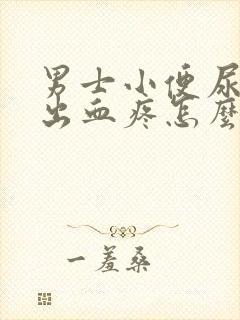 男士小便尿
出血疼怎麼
一羞桑